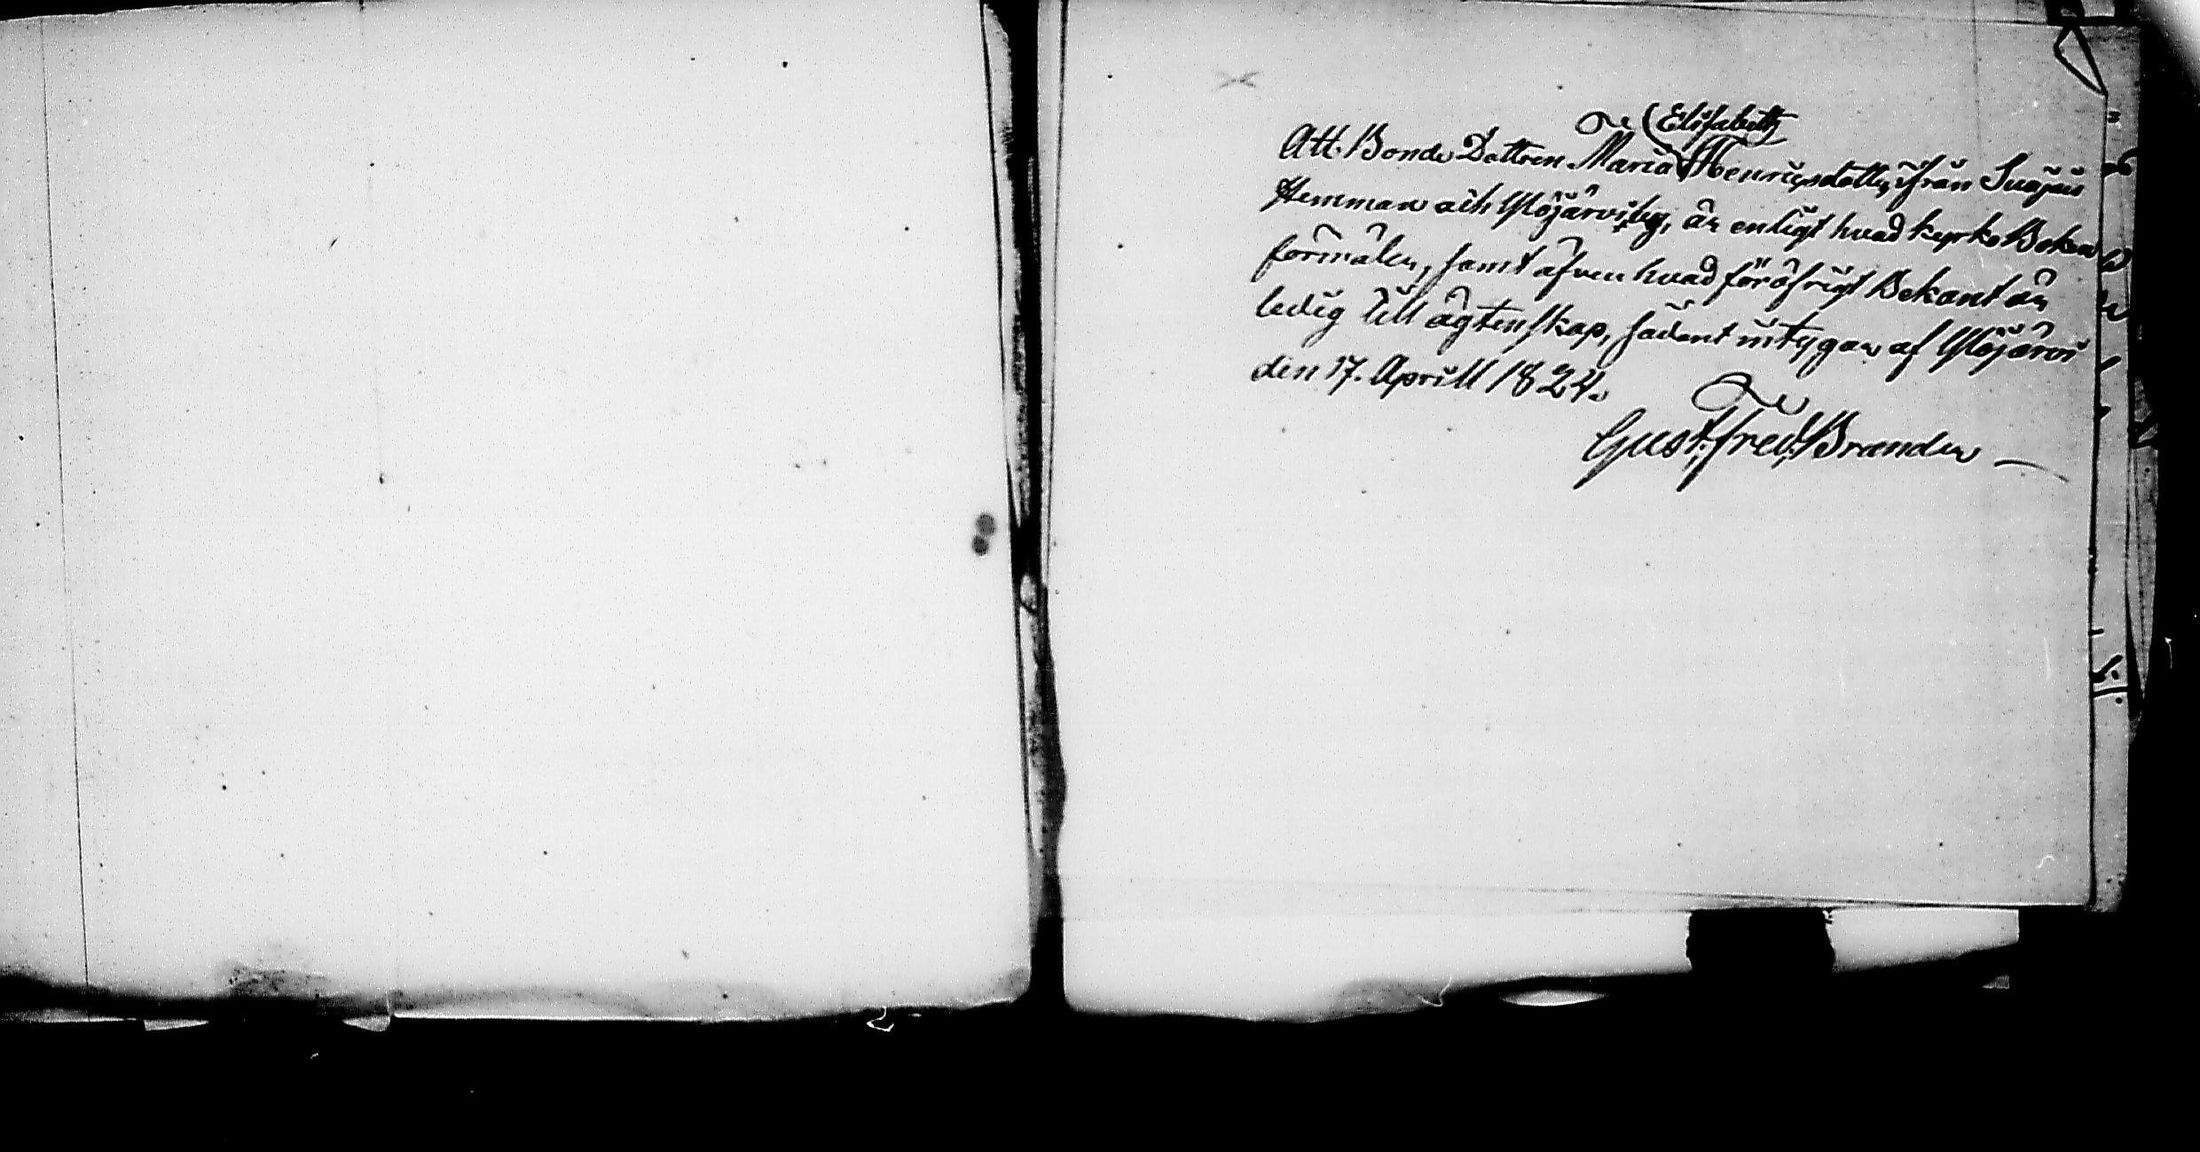 Elisabeth
Att Bonde Dottren Maria Henricsdotter ifrån Suojais
Hemman och Ylöjärvi by, är enligt hvad kyrko Boken
förmäler, samt äfven hvad föröfrigt Bekant är
ledig till ägtenskap, sådant intygar af Ylöjärvi
den 17. Aprill 1824.
Gust: Fred: Brander